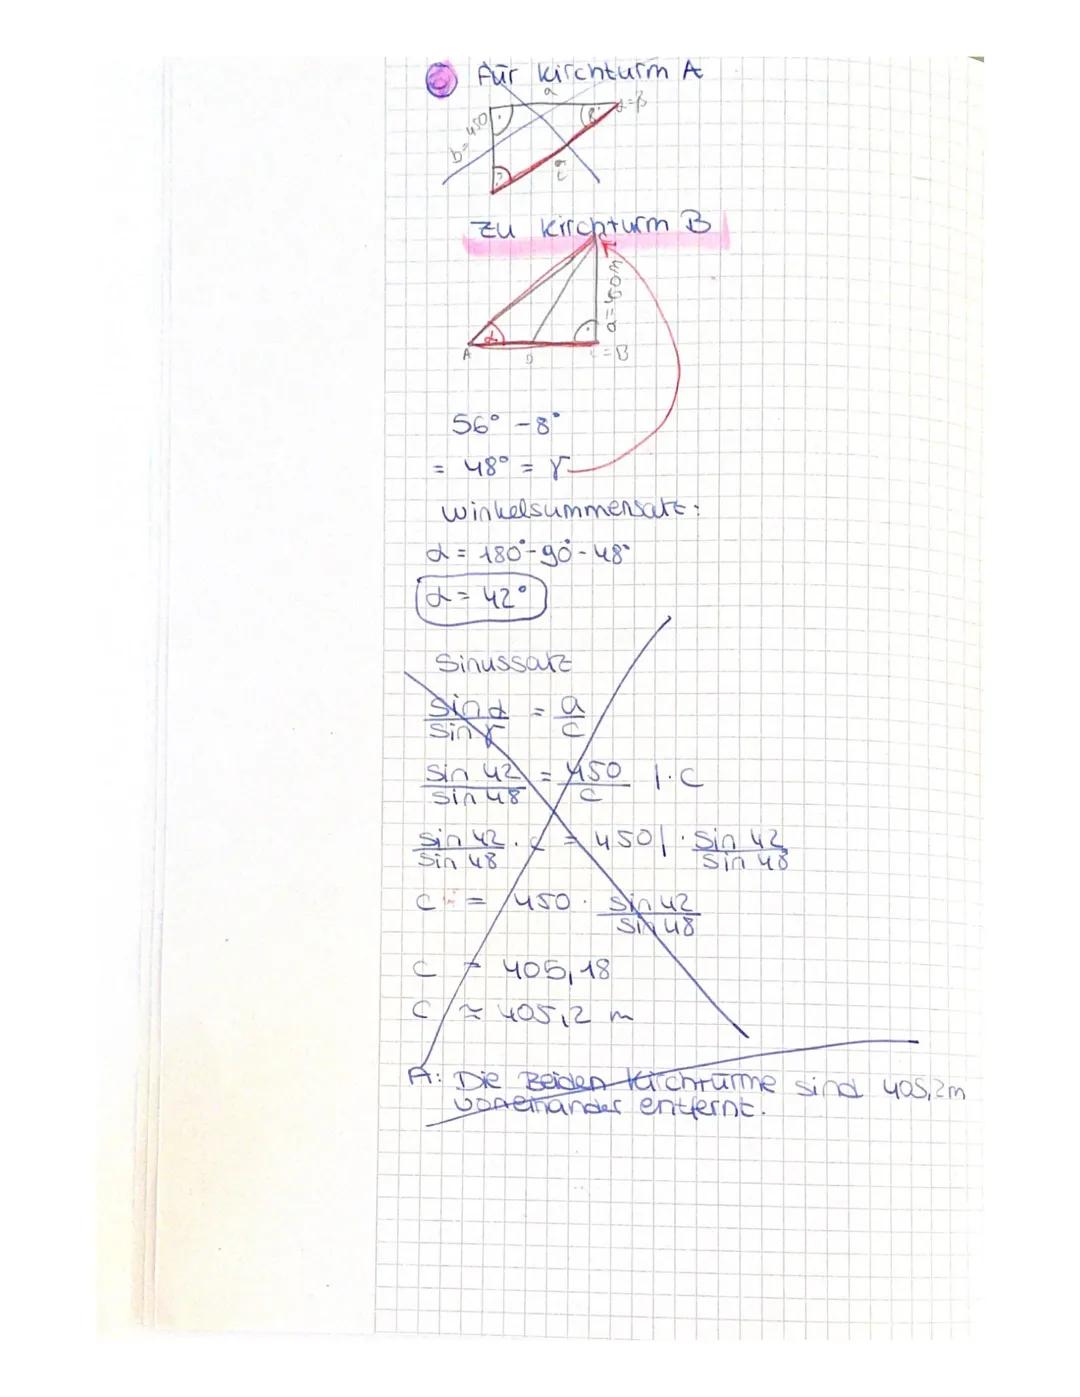 Für Kirchturm A
a
b=450
8°
α=β
?
c
zu Kirchturm B
a=450m
α
A
D
=B
56° - 8°
= 48° = γ
Winkelsummensatz:
α = 180°-90°-48°
α = 42°
Sinussatz
sin α / sin γ = a / c
sin 42 / sin 48 = 450 / c | · c
sin 42 / sin 48 · c = 450 | · sin 42 / sin 48
c = 450 · sin 42 / sin 48
c = 405,18
c ≈ 405,2 m
A: Die Beiden Kirchtürme sind 405,2m
voneinander entfernt.